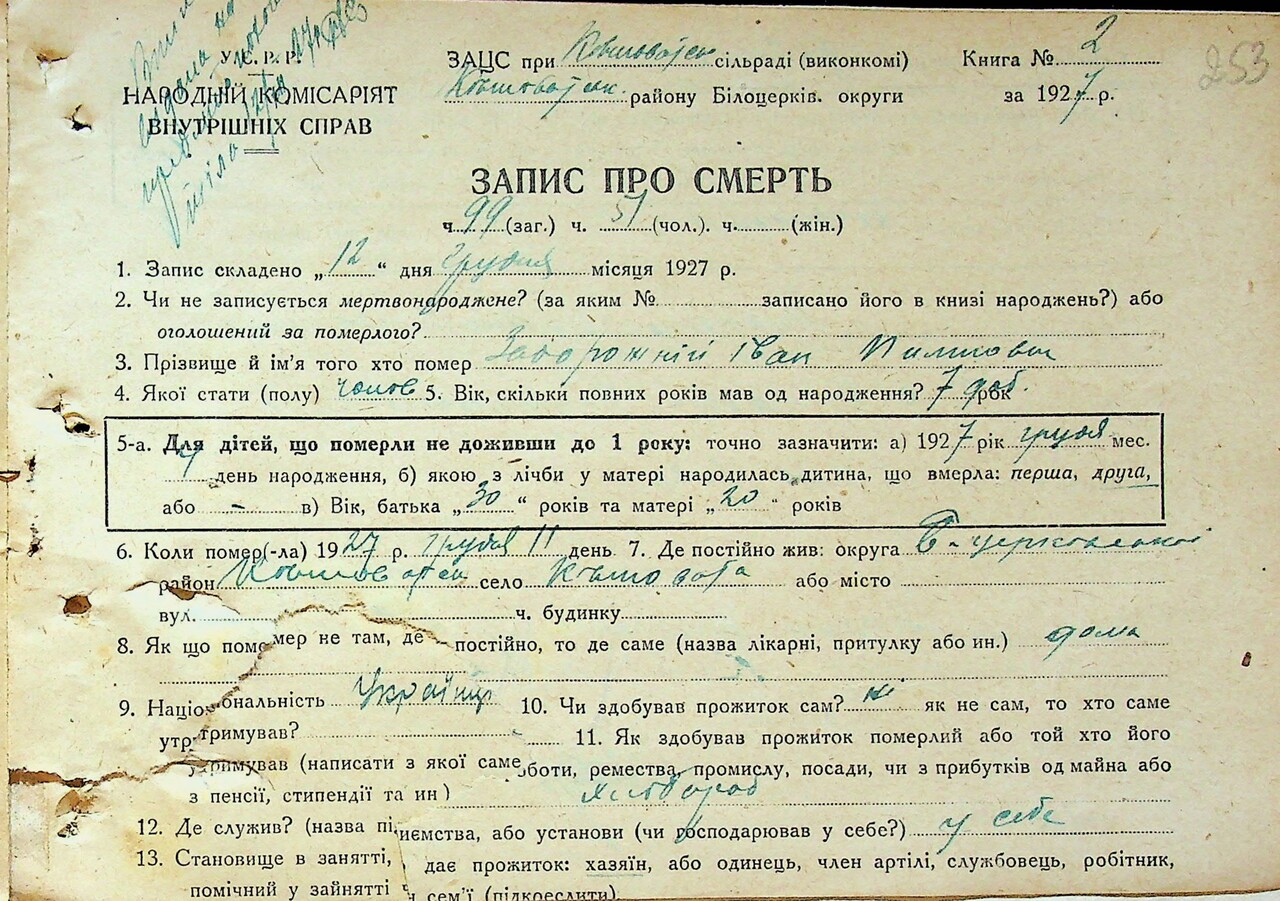 253
У.С.Р.Р.
НАРОДНІЙ КОМІСАРІЯТ
ВНУТРІШНІХ СПРАВ
ЗАЦС при сільраді (виконкомі)
району Білоцерків. округи
Книга № 2
за 1927 р.
ЗАПИС ПРО СМЕРТЬ
ч. 99 (заг.) ч. 51 (чол.). ч. (жін.)
1. Запис складено „12“ дня грудня місяця 1927 р.
2. Чи не записується мертвонароджене? (за яким № записано його в книзі народжень?) або
оголошений за померлого?
3. Прізвище й ім'я того хто помер Іван
4. Якої стати (полу) чолов 5. Вік, скільки повних років мав од народження? 7 доб. рок
5-а. Для дітей, що померли не доживши до 1 року: точно зазначити: а) 1927 рік грудня мес.
4 день народження, б) якою з лічби у матері народилась дитина, що вмерла: перша, друга,
або - в) Вік, батька „30“ років та матері „20“ років
6. Коли помер(-ла) 1927 р. грудня 11 день 7. Де постійно жив: округа Б-церковської
район Ковшоватск село Ковшовата або місто
вул. ч. будинку
8. Як що помемер не там, де постійно, то де саме (назва лікарні, притулку або ин.) дома
9. Національність Українець 10. Чи здобував прожиток сам? ні як не сам, то хто саме
утримував? 11. Як здобував прожиток померлий або той хто його
утримував (написати з якої саме роботи, ремества, промислу, посади, чи з прибутків од майна або
з пенсії, стипендії та ин) хлібороб
12. Де служив? (назва підприємства, або установи (чи господарював у себе?) у себе
13. Становище в занятті, дає прожиток: хазяїн, або одинець, член артілі, службовець, робітник,
помічний у зайнятті сем'ї (підкреслити).